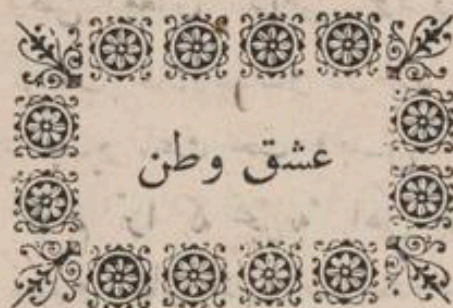 عشق وطن